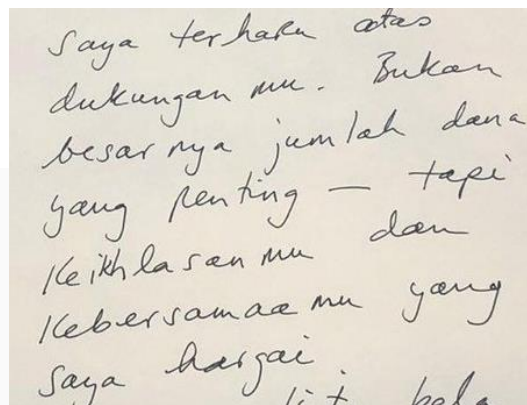 Saya terharu atas
dukungan mu. Bukan
besar nya jumlah dana
yang penting — tapi
Keikhlasan mu dan
Kebersamaa mu yang
saya hargai.